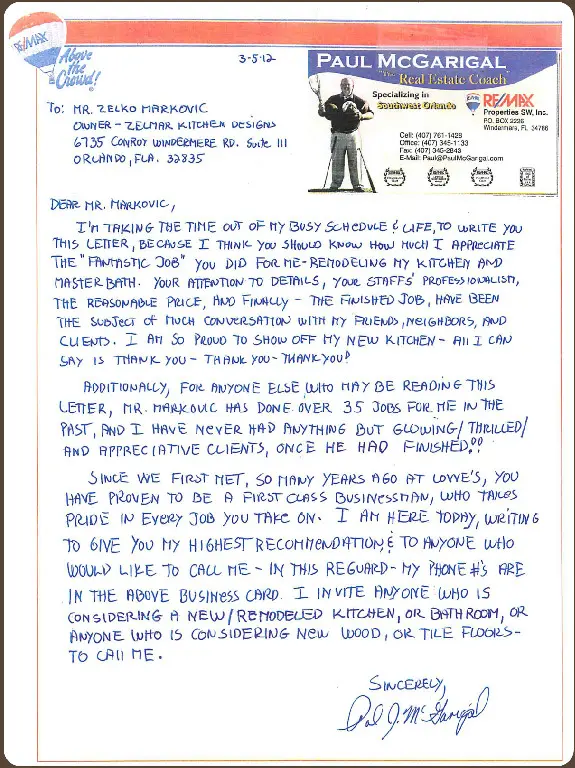 RE/MAX
Above
the
Crowd!
3-5-12
PAUL MCGARIGAL
"The Real Estate Coach"
Specializing in
Southwest Orlando
RE/MAX
Properties SW, Inc.
PO. BOX 2226
Windermere, FL. 34786
Cell: (407) 761-1428
Office: (407) 345-1133
Fax: (407) 345-2843
E-Mail: Paul@PaulMcGarigal.com
TO: MR. ZELKO MARKOVIC
OWNER - ZELMAR KITCHEN DESIGNS
6735 CONROY WINDERMERE RD. Suite 111
ORLANDO, FLA. 32835
DEAR MR. MARKOVIC,
I'M TAKING THE TIME OUT OF MY BUSY SCHEDULE & LIFE, TO WRITE YOU
THIS LETTER, BECAUSE I THINK YOU SHOULD KNOW HOW MUCH I APPRECIATE
THE "FANTASTIC JOB" YOU DID FOR ME-REMODELING MY KITCHEN AND
MASTER BATH. YOUR ATTENTION TO DETAILS, YOUR STAFFS' PROFESSIONALISM,
THE REASONABLE PRICE, AND FINALLY - THE FINISHED JOB, HAVE BEEN
THE SUBJECT OF MUCH CONVERSATION WITH MY FRIENDS, NEIGHBORS, AND
CLIENTS. I AM SO PROUD TO SHOW OFF MY NEW KITCHEN - All I CAN
SAY IS THANK YOU - THANK YOU - THANK YOU!
ADDITIONALLY, FOR ANYONE ELSE WHO MAY BE READING THIS
LETTER, MR. MARKOVIC HAS DONE OVER 35 JOBS FOR ME IN THE
PAST, AND I HAVE NEVER HAD ANYTHING BUT GLOWING/THRILLED/
AND APPRECIATIVE CLIENTS, ONCE HE HAD FINISHED.!!
SINCE WE FIRST MET, SO MANY YEARS AGO AT LOWE'S, YOU
HAVE PROVEN TO BE A FIRST CLASS BUSINESSMAN, WHO TAKES
PRIDE IN EVERY JOB YOU TAKE ON. I AM HERE TODAY, WRITING
TO GIVE YOU MY HIGHEST RECOMMENDATION, & TO ANYONE WHO
WOULD LIKE TO CALL ME - IN THIS REGUARD - MY PHONE #'s ARE
IN THE ABOVE BUSINESS CARD. I INVITE ANYONE WHO IS
CONSIDERING A NEW/REMODELED KITCHEN, OR BATHROOM, OR
ANYONE WHO IS CONSIDERING NEW WOOD, OR TILE FLOORS-
TO CAll ME.
SINCERELY,
Paul J. McGarigal